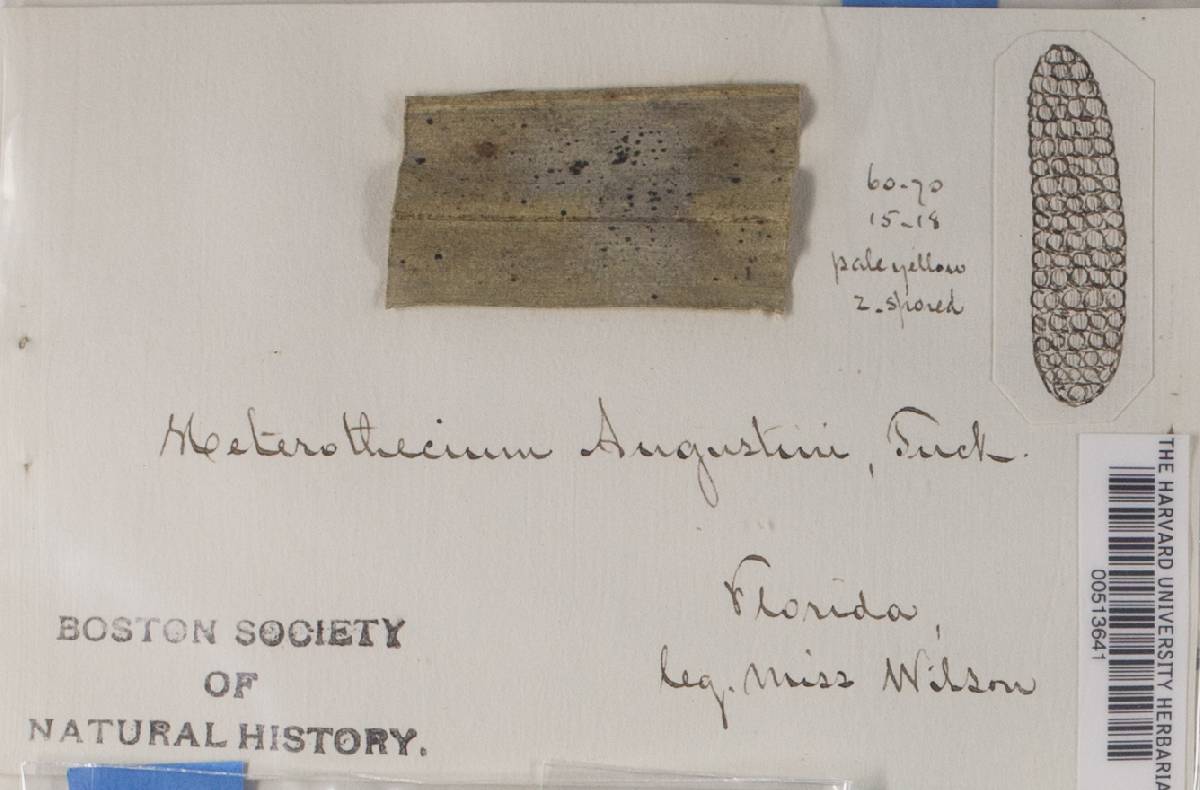 60-70
15-18
pale yellow
2-spored
Heterothecium Augustini, Tuck.
Florida,
leg. Miss Wilson
BOSTON SOCIETY
OF
NATURAL HISTORY.
THE HARVARD UNIVERSITY HERBARIA
00513641